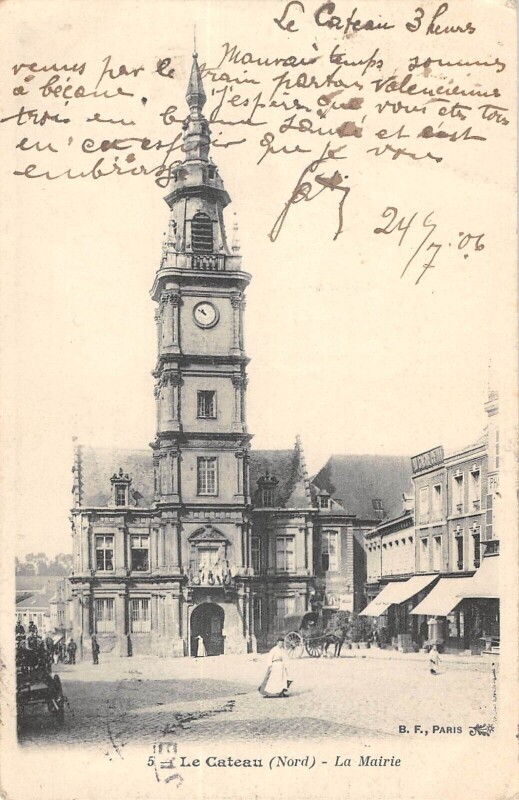 Le Cateau 3 heures
Mauvais temps, sommes
venus par le train partons Valencienne
à bécane J'espère que vous êtes tous
trois en bonne santé et c'est
en cet espoir que je vous
embrasse
24/7 06
B. F., PARIS
5 - LE CATEAU (Nord) - La Mairie